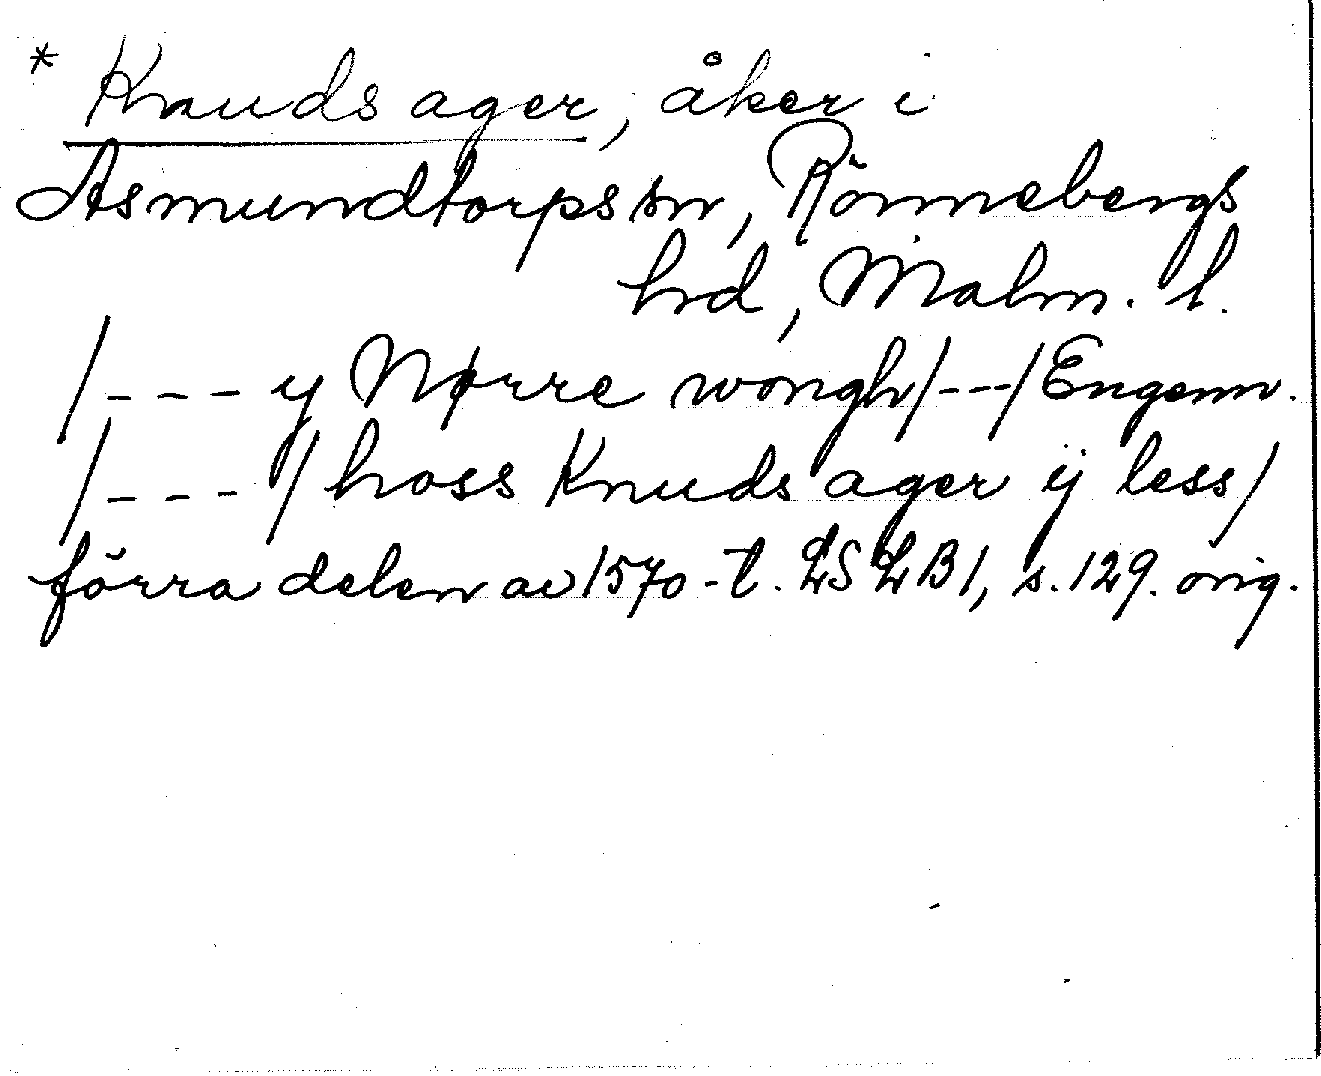 * Knuds ager, åker i
Asmundtorps sn, Rönnebergs
hd, Malm. l.
/--- y Nørre wongh/---/Engenn.
/---/hoss Knuds ager ij less/
förra delen av 1570-t. LSLB1, s. 129. orig.